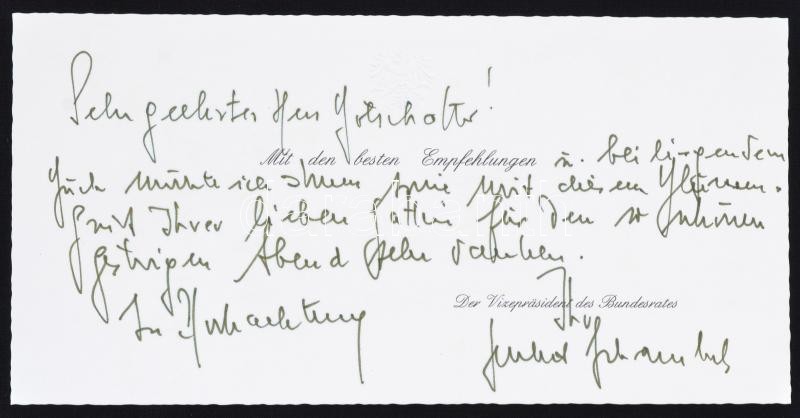 Sehr geehrter Herr Botschafter!
Mit den besten Empfehlungen u. beiliegendem
Buch möchte ich Ihnen sowie mit diesem Blumen-
gruß Ihrer lieben Gattin für den so schönen
gestrigen Abend sehr danken.
Der Vizepräsident des Bundesrates
In Hochachtung
Ihr